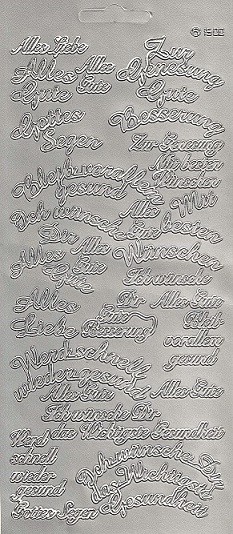 Alles Liebe
Zur
Genesung
Alles Gute
Alles
Gute
Gute
Gottes
Segen
Besserung
Zur Genesung
Mit besten
Wünschen
Bleib vor allem
gesund
Alles
Mit
besten
Wünschen
Ich wünsche
Dir
Alles
Gute
Alles
Gute
Ich wünsche
Dir
Alles Gute
Alles
Liebe
Gute
Besserung
Bleib
vor allem
gesund
Werd schnell
wieder gesund
Alles Gute
Alles Gute
Ich wünsche Dir
das Wichtigste Gesundheit
Werd
schnell
wieder
gesund
Gottes Segen
Ich wünsche Dir
das Wichtigste
Gesundheit